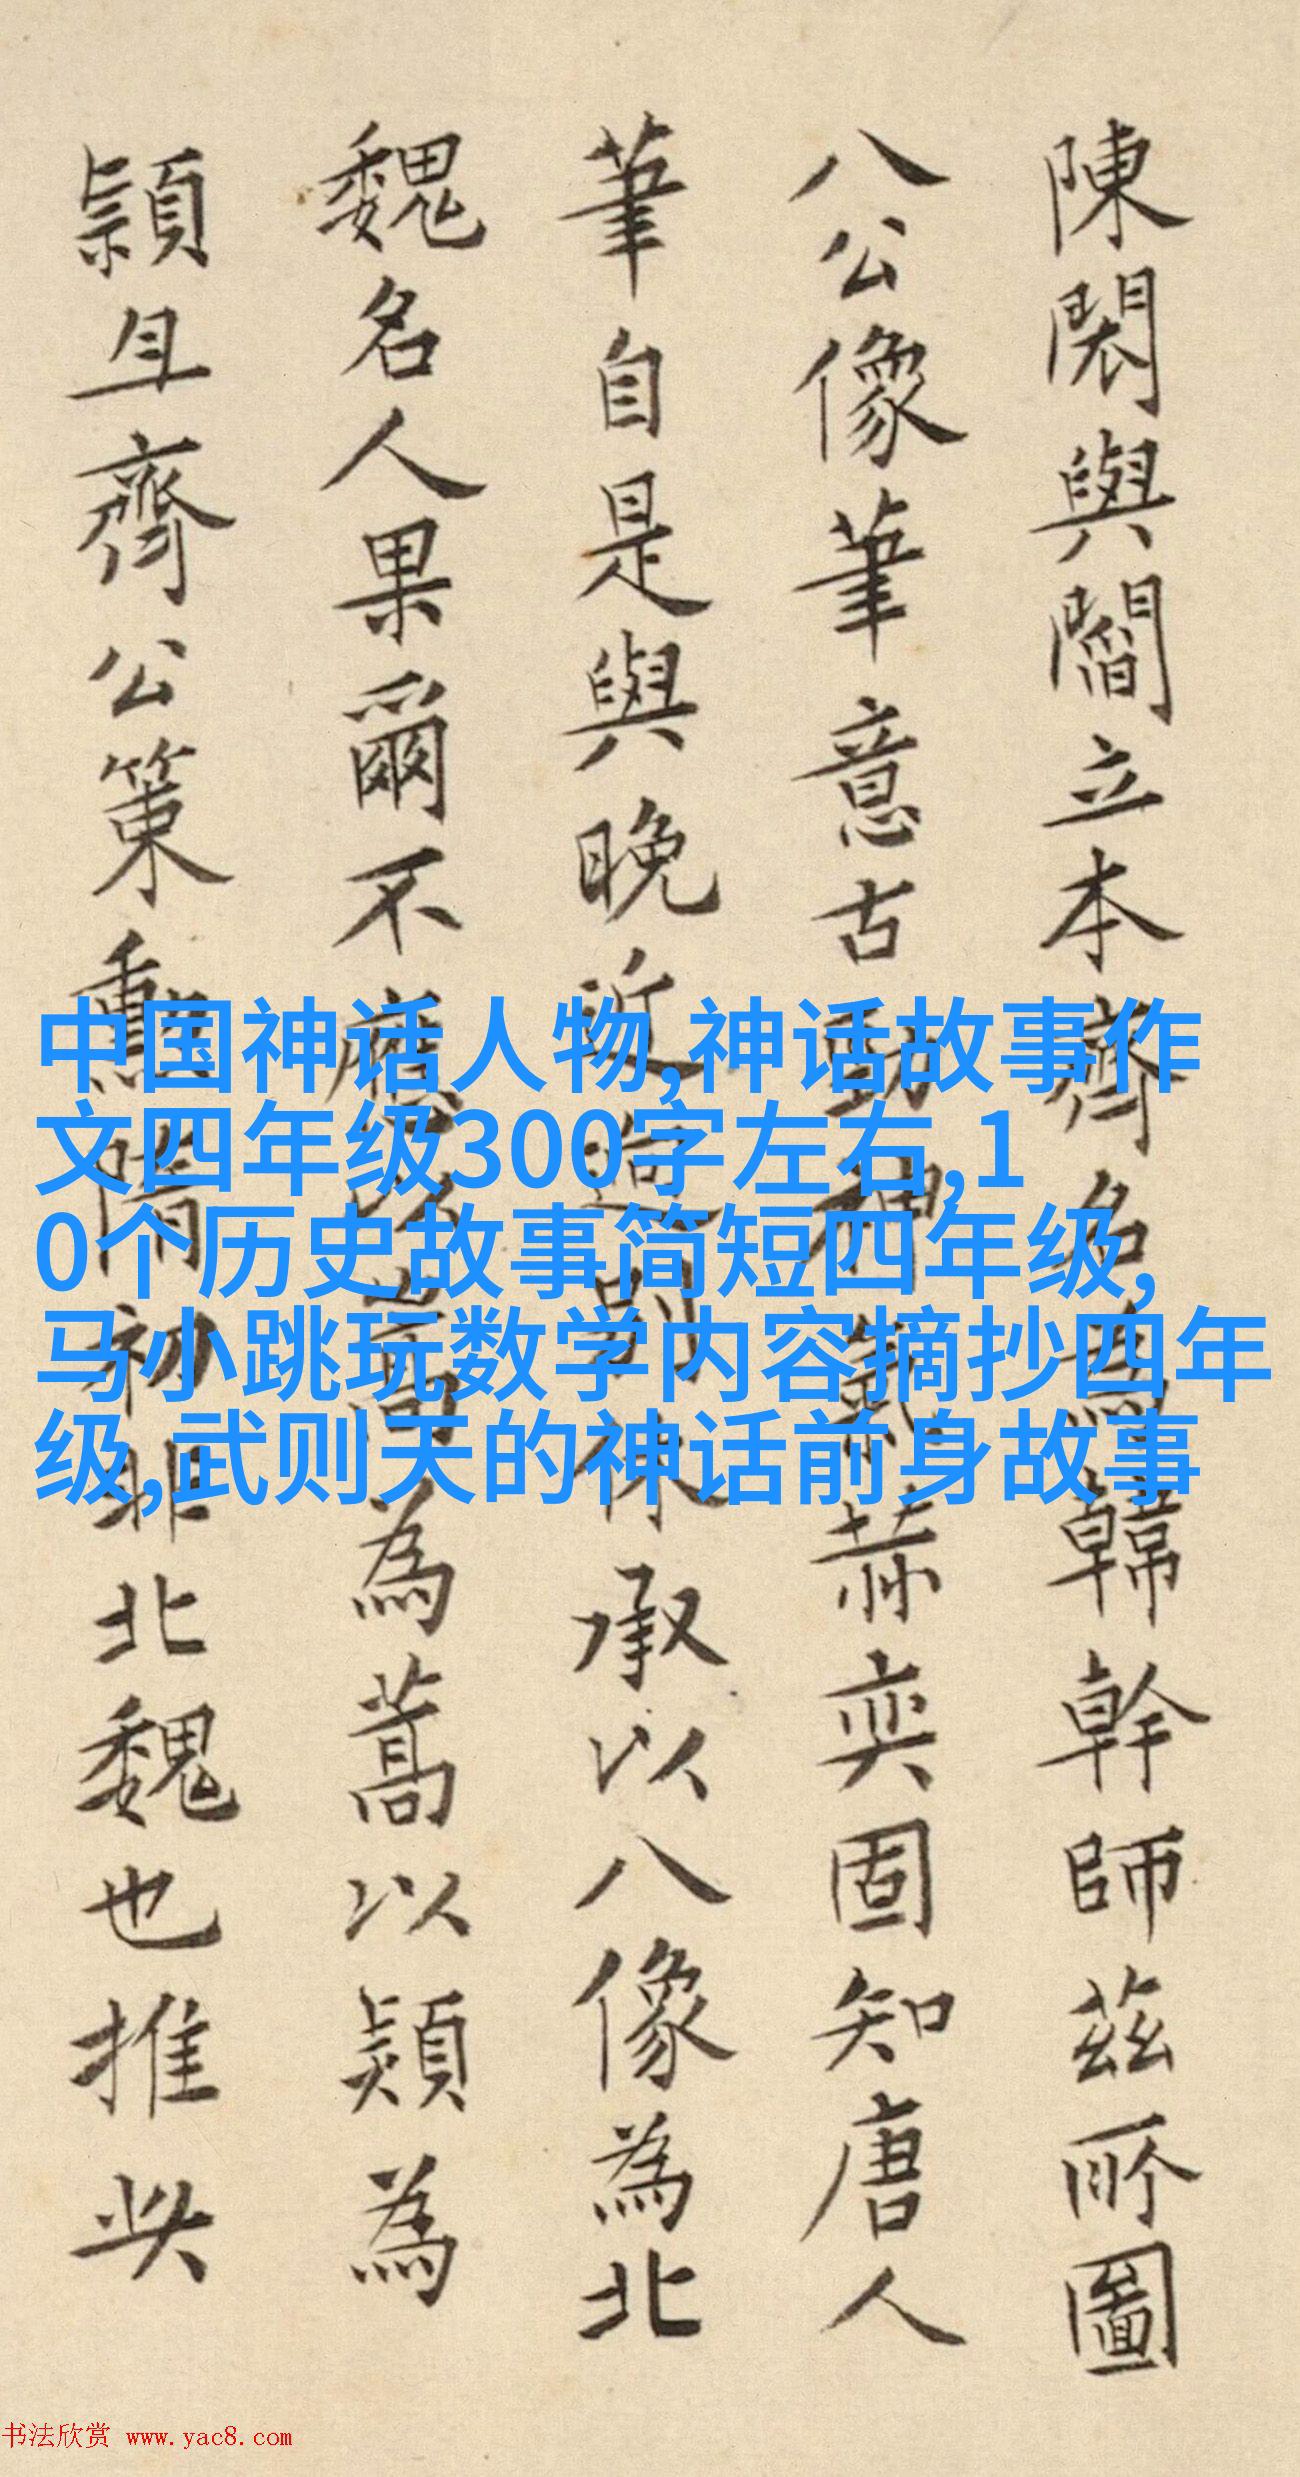 陳閎與閻立本齊名為韓幹師茲所圖
八公像筆意古勁神氣赫奕固知唐人
筆自是與晚近迥別休承以八像為北
魏名人果爾不應以高為蒿以熲為
頴且齊公策勳隋初非北魏也推
中国神话人物,神话故事作
文四年级300字左右,1
0个历史故事简短四年级,
马小跳玩数学内容摘抄四年
级,武则天的神话前身故事
书法欣赏 www.yac8.com